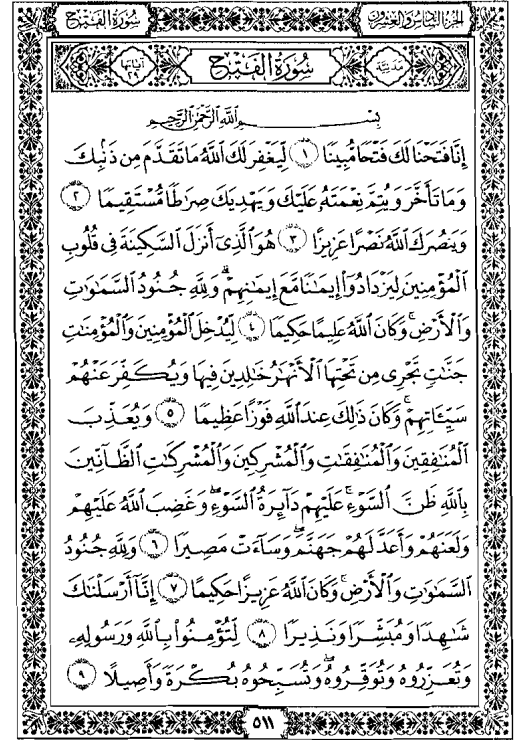 سُورَةُ الفَتْحِ الجُزءُ السَّادِسُ وَالعِشْرُونَ
آيَاتُهَا ٢٩ سُورَةُ الفَتْحِ مَدَنِيَّة
بِسْمِ اللَّهِ الرَّحْمَٰنِ الرَّحِيمِ
إِنَّا فَتَحْنَا لَكَ فَتْحًا مُّبِينًا ١ لِّيَغْفِرَ لَكَ اللَّهُ مَا تَقَدَّمَ مِن ذَنۢبِكَ
وَمَا تَأَخَّرَ وَيُتِمَّ نِعْمَتَهُۥ عَلَيْكَ وَيَهْدِيَكَ صِرَٰطًا مُّسْتَقِيمًا ٢
وَيَنصُرَكَ ٱللَّهُ نَصْرًا عَزِيزًا ٣ هُوَ ٱلَّذِىٓ أَنزَلَ ٱلسَّكِينَةَ فِى قُلُوبِ
ٱلْمُؤْمِنِينَ لِيَزْدَادُوٓا۟ إِيمَٰنًا مَّعَ إِيمَٰنِهِمْ ۗ وَلِلَّهِ جُنُودُ ٱلسَّمَٰوَٰتِ
وَٱلْأَرْضِ ۚ وَكَانَ ٱللَّهُ عَلِيمًا حَكِيمًا ٤ لِّيُدْخِلَ ٱلْمُؤْمِنِينَ وَٱلْمُؤْمِنَٰتِ
جَنَّٰتٍ تَجْرِى مِن تَحْتِهَا ٱلْأَنْهَٰرُ خَٰلِدِينَ فِيهَا وَيُكَفِّرَ عَنْهُمْ
سَيِّـَٔاتِهِمْ ۚ وَكَانَ ذَٰلِكَ عِندَ ٱللَّهِ فَوْزًا عَظِيمًا ٥ وَيُعَذِّبَ
ٱلْمُنَٰفِقِينَ وَٱلْمُنَٰفِقَٰتِ وَٱلْمُشْرِكِينَ وَٱلْمُشْرِكَٰتِ ٱلظَّآنِّينَ
بِٱللَّهِ ظَنَّ ٱلسَّوْءِ ۚ عَلَيْهِمْ دَآئِرَةُ ٱلسَّوْءِ ۖ وَغَضِبَ ٱللَّهُ عَلَيْهِمْ
وَلَعَنَهُمْ وَأَعَدَّ لَهُمْ جَهَنَّمَ ۖ وَسَآءَتْ مَصِيرًا ٦ وَلِلَّهِ جُنُودُ
ٱلسَّمَٰوَٰتِ وَٱلْأَرْضِ ۚ وَكَانَ ٱللَّهُ عَزِيزًا حَكِيمًا ٧ إِنَّآ أَرْسَلْنَٰكَ
شَٰهِدًا وَمُبَشِّرًا وَنَذِيرًا ٨ لِّتُؤْمِنُوا۟ بِٱللَّهِ وَرَسُولِهِۦ
وَتُعَزِّرُوهُ وَتُوَقِّرُوهُ ۚ وَتُسَبِّحُوهُ بُكْرَةً وَأَصِيلًا ٩
٥١١